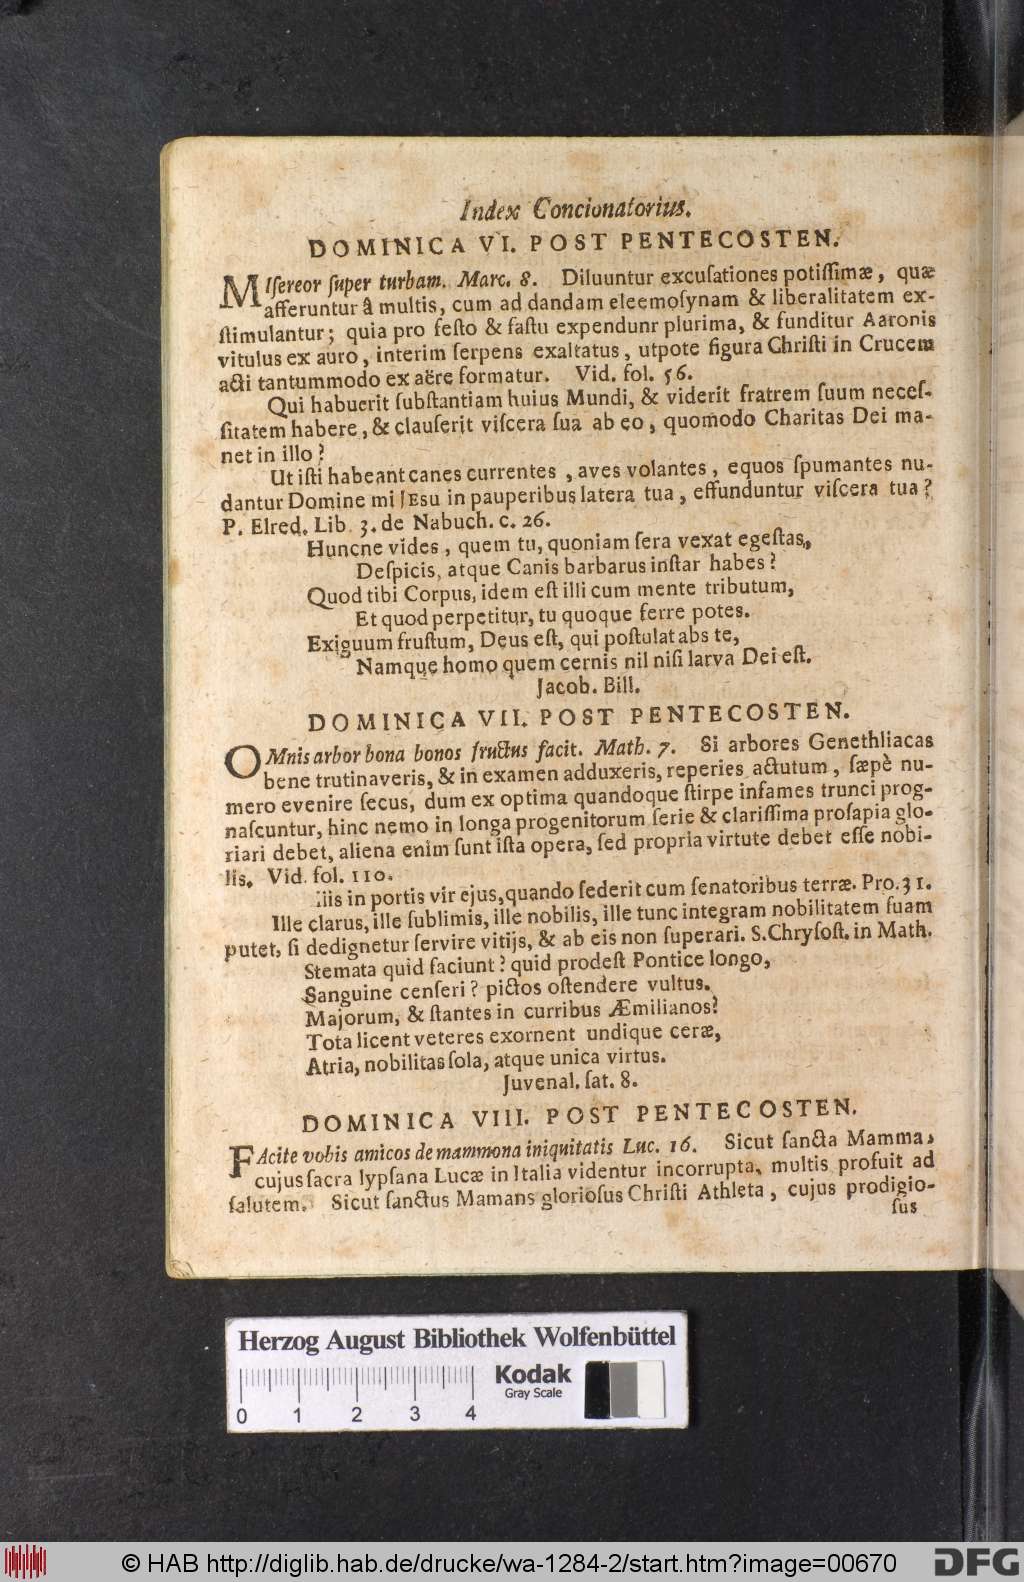 Index Concionatorius.
DOMINICA VI. POST PENTECOSTEN.
MIſereor ſuper turbam. Marc. 8. Diluuntur excuſationes potiſſimæ, quæ
afferuntur â multis, cum ad dandam eleemoſynam & liberalitatem ex-
ſtimulantur; quia pro feſto & faſtu expendunr plurima, & funditur Aaronis
vitulus ex auro, interim ſerpens exaltatus, utpote figura Chriſti in Crucem
acti tantummodo ex aëre formatur. Vid. fol. 56.
Qui habuerit ſubſtantiam huius Mundi, & viderit fratrem ſuum neceſ-
ſitatem habere, & clauſerit viſcera ſua ab eo, quomodo Charitas Dei ma-
net in illo?
Ut iſti habeant canes currentes, aves volantes, equos ſpumantes nu-
dantur Domine mi JESU in pauperibus latera tua, effunduntur viſcera tua?
P. Elred. Lib. 3. de Nabuch. c. 26.
Huncne vides, quem tu, quoniam ſera vexat egeſtas,
Deſpicis, atque Canis barbarus inſtar habes?
Quod tibi Corpus, idem eſt illi cum mente tributum,
Et quod perpetitur, tu quoque ferre potes.
Exiguum fruſtum, Deus eſt, qui poſtulat abs te,
Namque homo quem cernis nil niſi larva Dei eſt.
Jacob. Bill.
DOMINICA VII. POST PENTECOSTEN.
OMnis arbor bona bonos fructus facit. Math. 7. Si arbores Genethliacas
bene trutinaveris, & in examen adduxeris, reperies actutum, ſæpè nu-
mero evenire ſecus, dum ex optima quandoque ſtirpe infames trunci prog-
naſcuntur, hinc nemo in longa progenitorum ſerie & clariſſima proſapia glo-
riari debet, aliena enim ſunt iſta opera, ſed propria virtute debet eſſe nobi-
lis. Vid. fol. 110.
in portis vir ejus, quando ſederit cum ſenatoribus terræ. Pro. 31.
Ille clarus, ille ſublimis, ille nobilis, ille tunc integram nobilitatem ſuam
putet, ſi dedignetur ſervire vitijs, & ab eis non ſuperari. S. Chryſoſt. in Math.
Stemata quid faciunt? quid prodeſt Pontice longo,
Sanguine cenſeri? pictos oſtendere vultus.
Majorum, & ſtantes in curribus Æmilianos?
Tota licent veteres exornent undique ceræ,
Atria, nobilitas ſola, atque unica virtus.
Juvenal. ſat. 8.
DOMINICA VIII. POST PENTECOSTEN.
FAcite vobis amicos de mammona iniquitatis Luc. 16. Sicut ſancta Mamma,
cujus ſacra lypſana Lucæ in Italia videntur incorrupta, multis profuit ad
ſalutem. Sicut ſanctus Mamans glorioſus Chriſti Athleta, cujus prodigio-
ſus
Herzog August Bibliothek Wolfenbüttel
Kodak
Gray Scale
0 1 2 3 4
© HAB http://diglib.hab.de/drucke/wa-1284-2/start.htm?image=00670
DFG